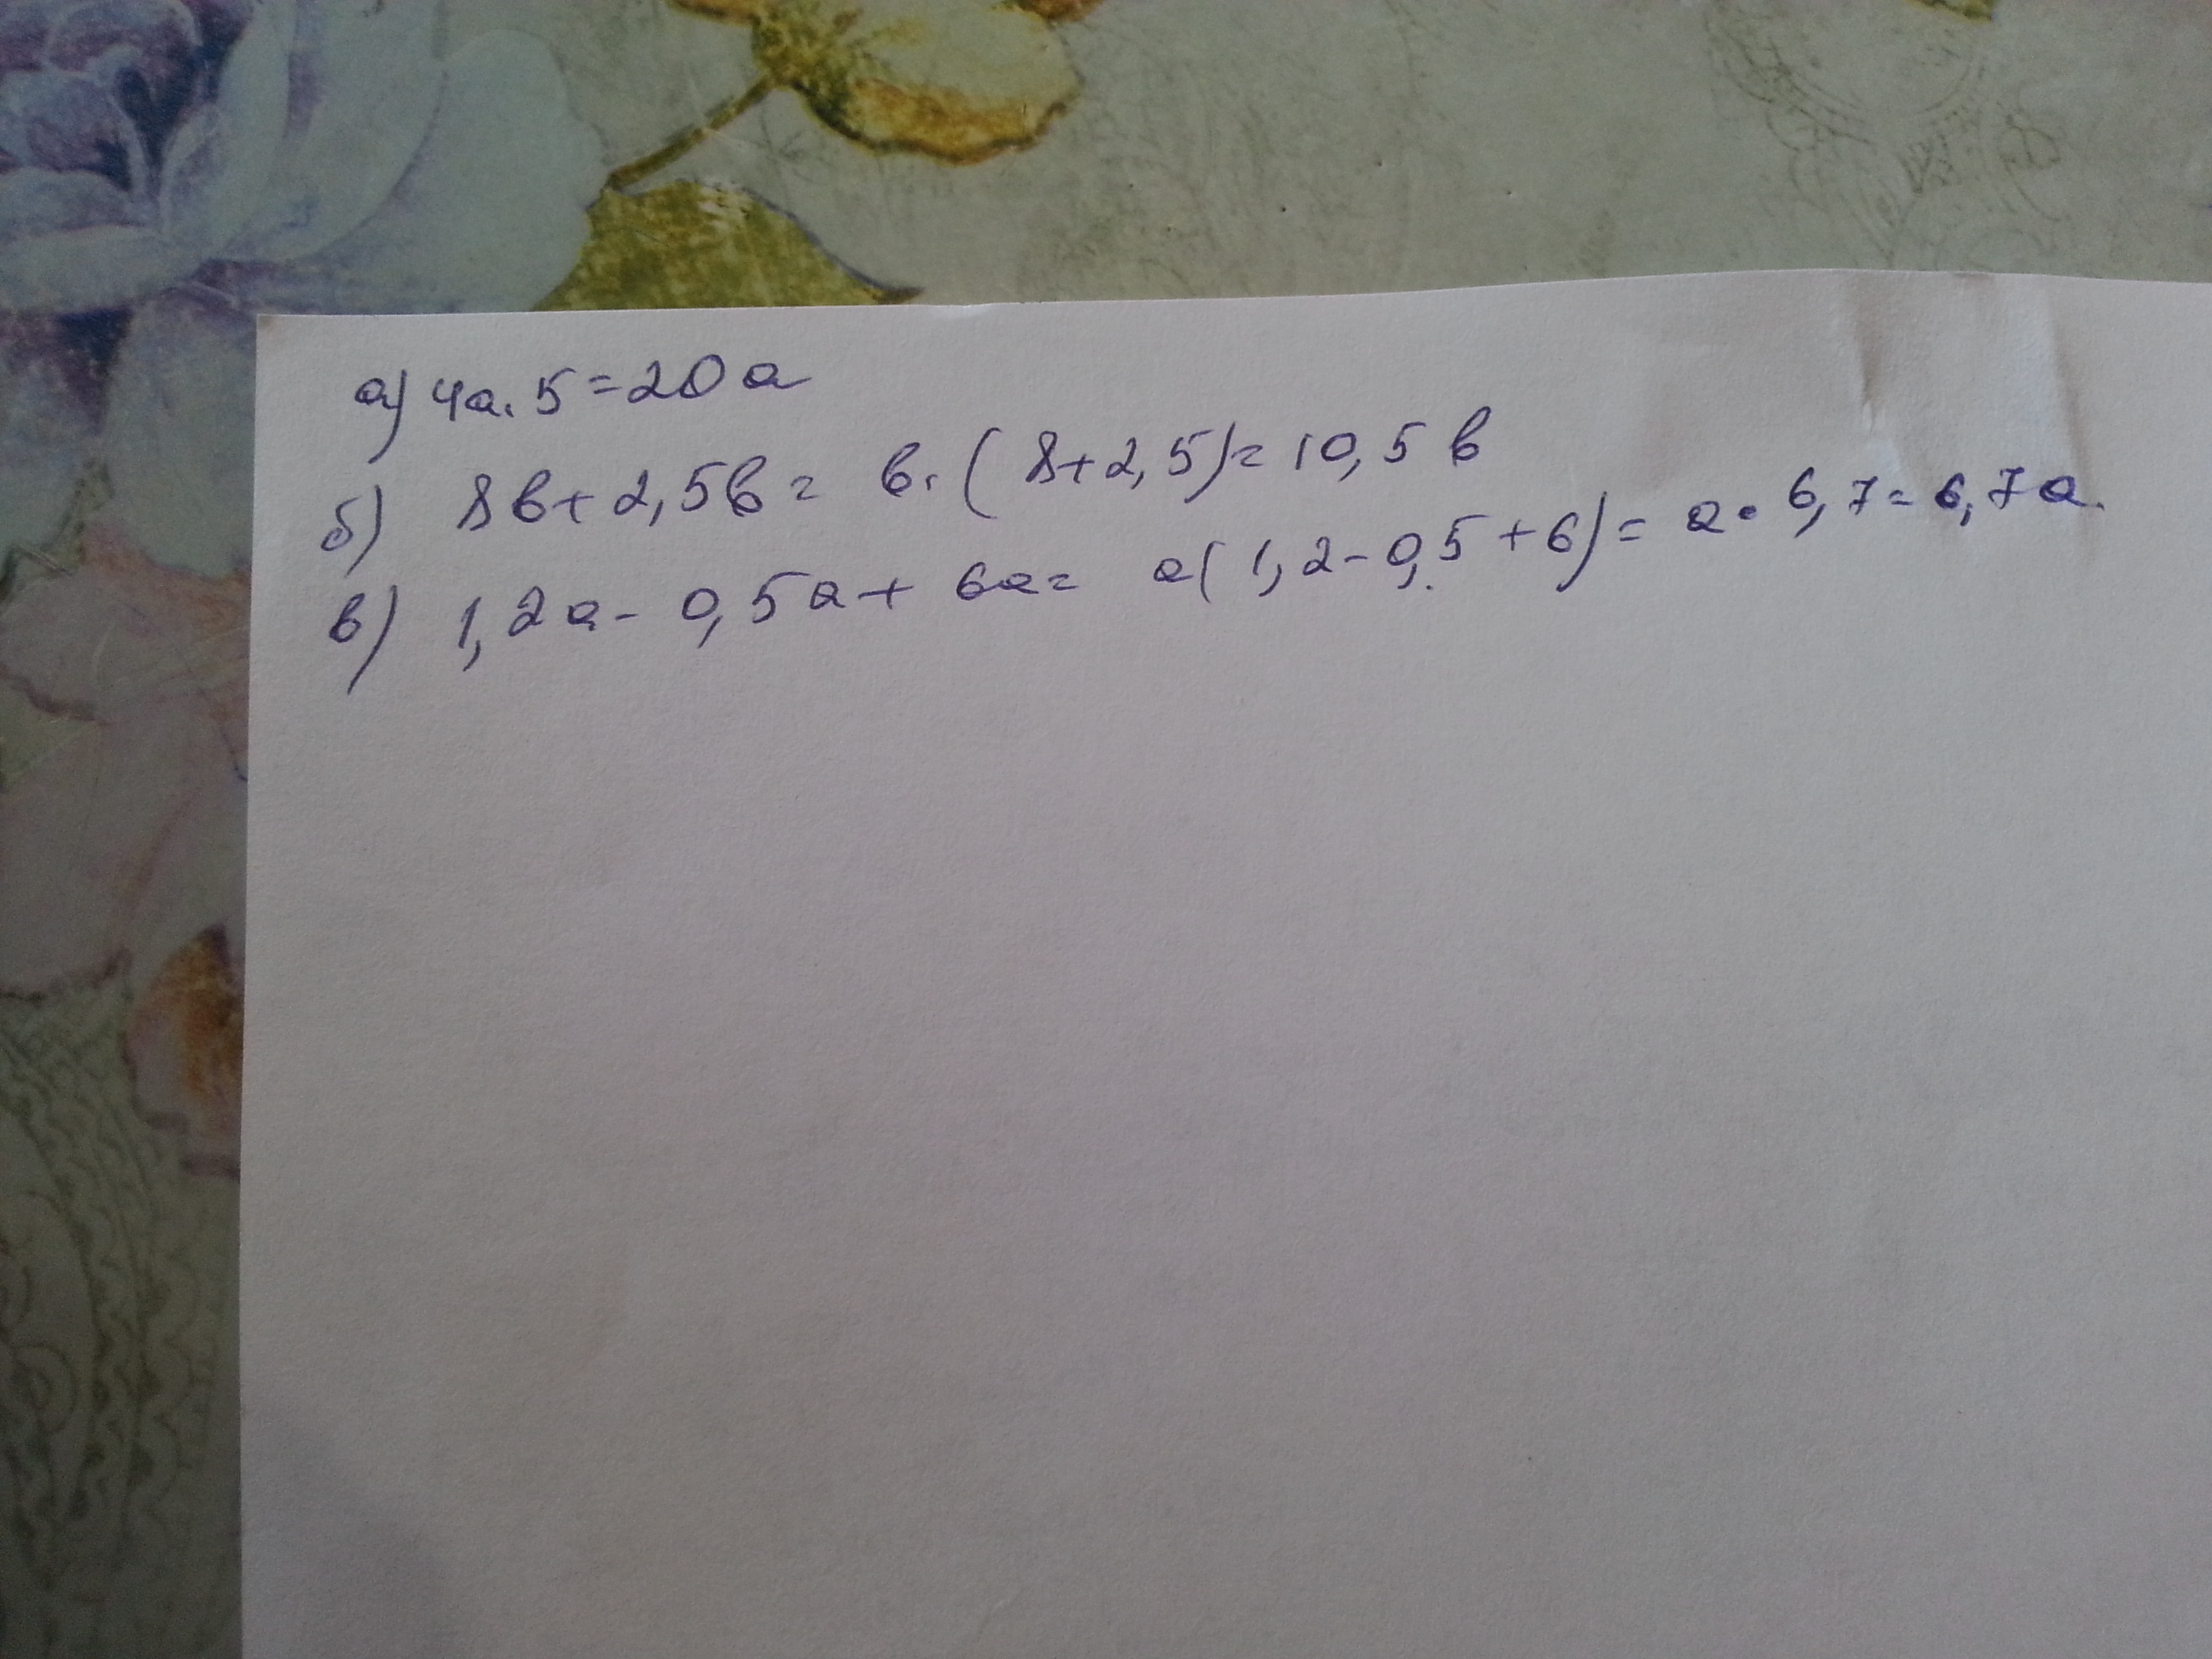 а) 4а. 5=20а
б) 8в+2,5в= в. (8+2,5)=10,5в
в) 1,2а-0,5а+6а= а(1,2-0,5+6)=а·6,7=6,7а.